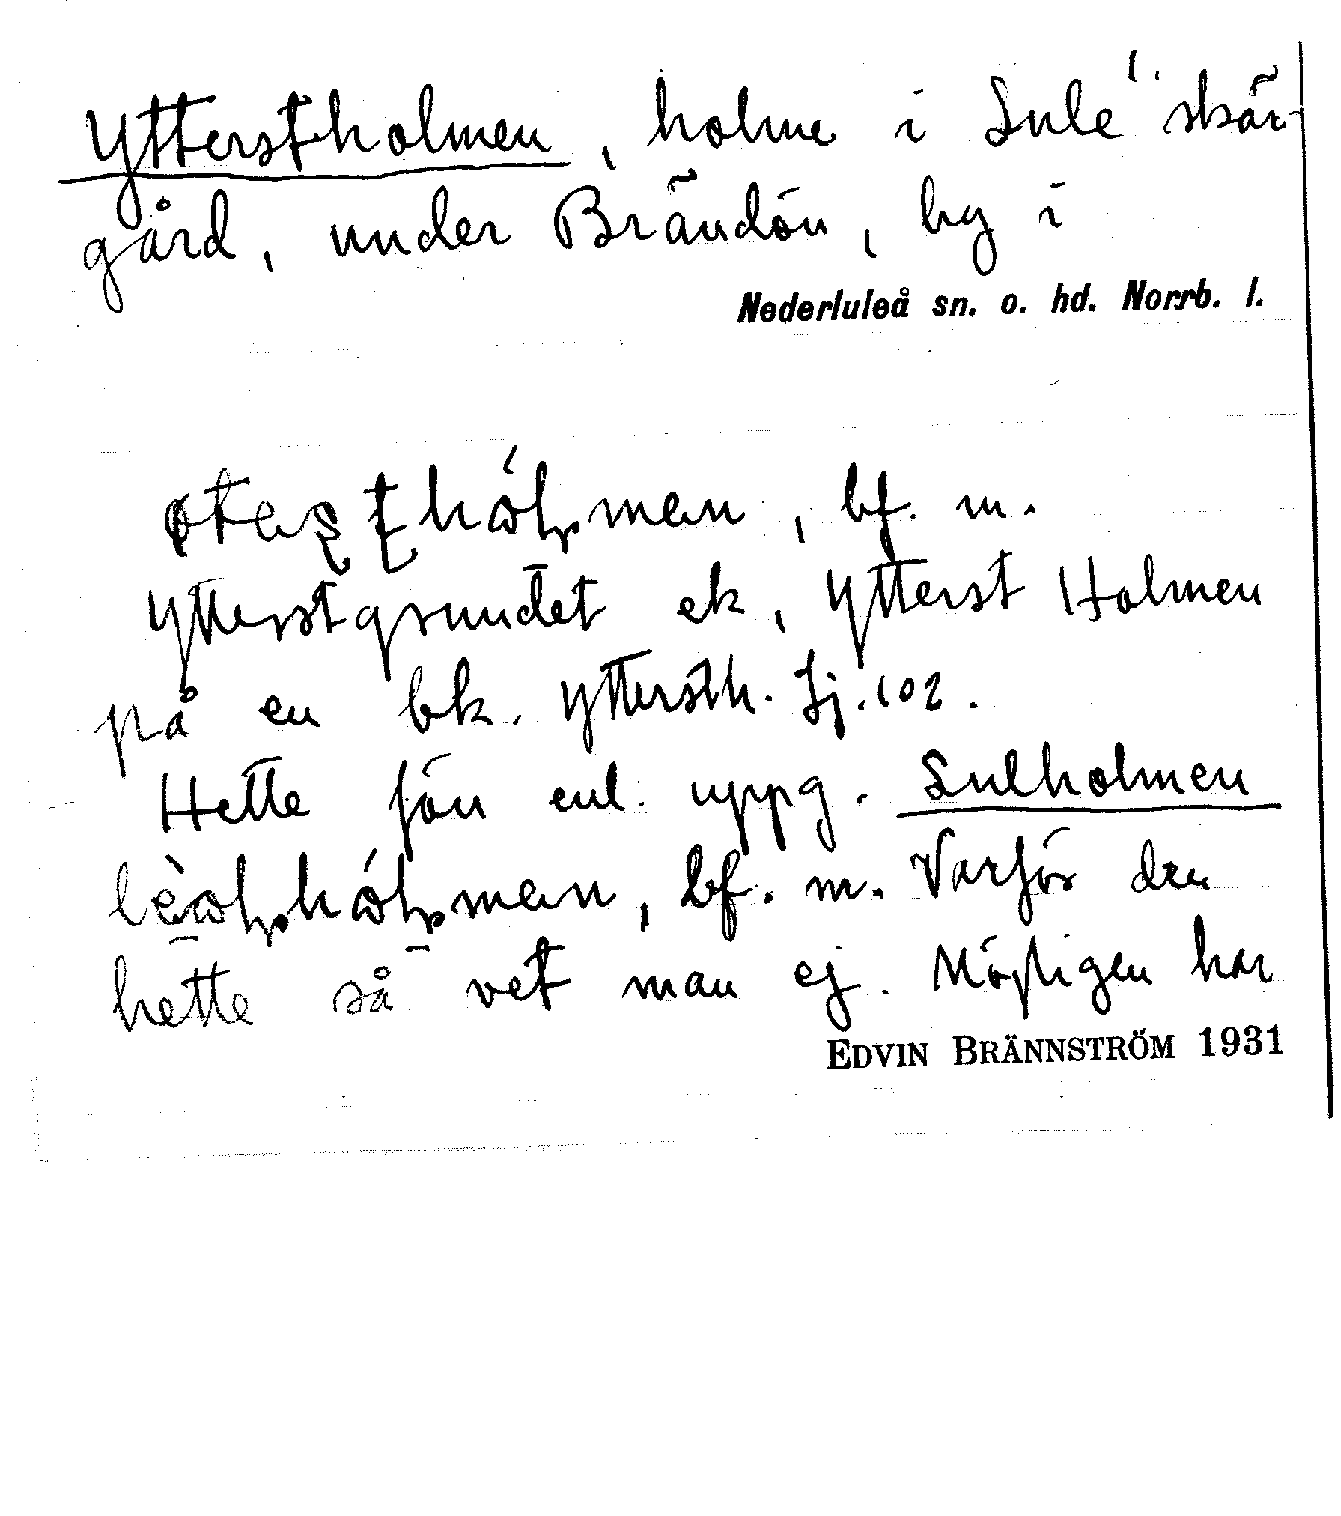 Ytterstholmen, holme i Lule skär-
gård, under Brändön, by i
Nederluleå sn. o. hd. Norrb. l.
bf. m.
Ytterstgrundet ek, Ytterst Holmen
på en bk. Yttersth. Sj. 102.
Hette förr enl. uppg. Lulholmen
bf. m. Varför den
hette så vet man ej. Möjligen har
EDVIN BRÄNNSTRÖM 1931